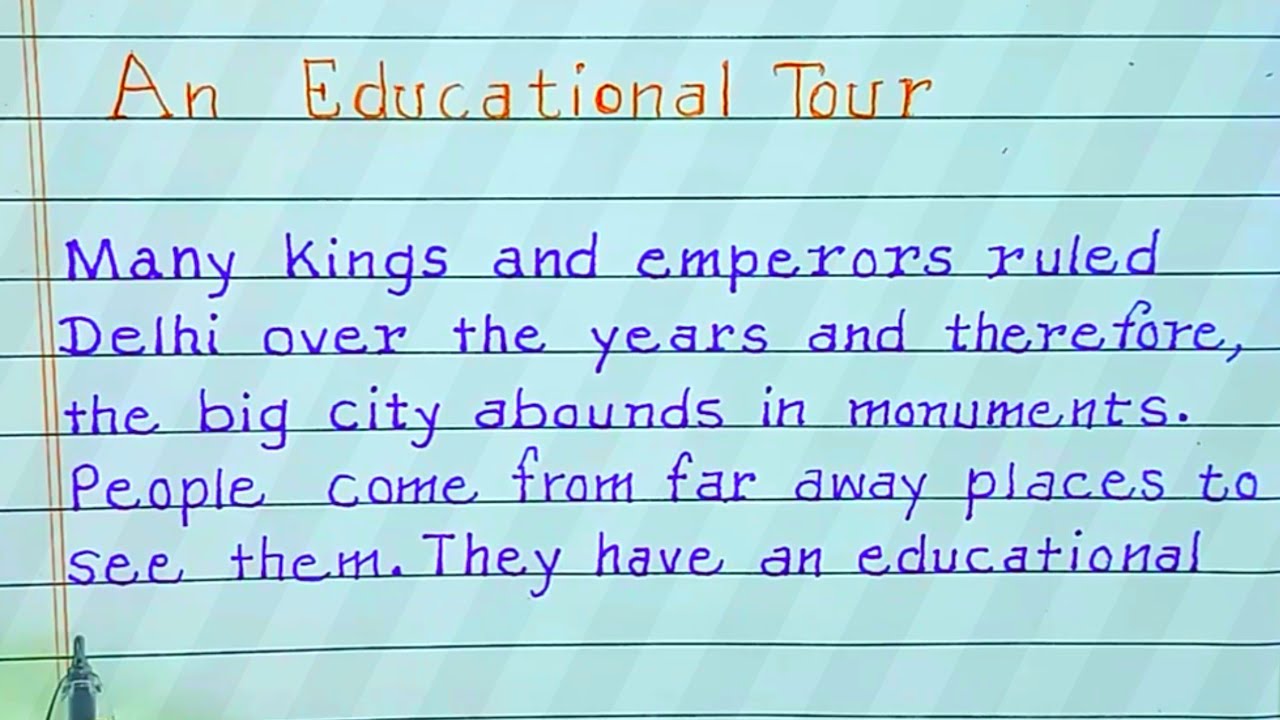 An Educational Tour
Many kings and emperors ruled
Delhi over the years and therefore,
the big city abounds in monuments.
People come from far away places to
see them. They have an educational